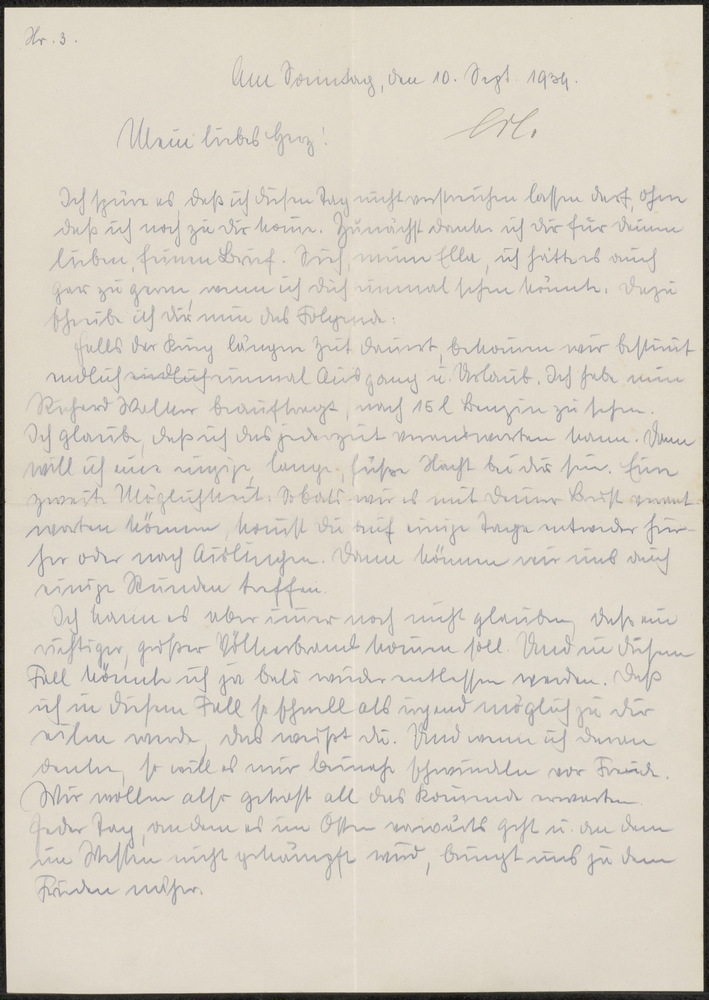 Nr. 3.
Am Sonntag, den 10. Sept. 1939.
Mein liebes Herz!
Ich spüre es, daß ich diesen Tag nicht verstreichen lassen darf, ohne
daß ich noch zu dir komme. Zunächst danke ich dir für deinen
lieben, feinen Brief. Sieh, meine Ella, ich hätte es auch
gar zu gerne, wenn ich dich einmal sehen könnte. Dazu
schreibe ich dir nun das Folgende:
Falls der Krieg längere Zeit dauert, bekommen wir bestimmt
endlich einmal Ausgang u. Urlaub. Ich habe nun
Richard Walker beauftragt, nach 15 l Benzin zu sehen.
Ich glaube, daß ich das jederzeit verantworten kann. Dann
will ich eine einzige lange, süße Nacht bei dir sein. Eine
zweite Möglichkeit: Sobald wir es mit deiner Brust verant-
worten können, kommst du auf einige Tage entweder hier-
her oder nach . Dann können wir uns auch
einige Stunden treffen.
Ich kann es aber immer noch nicht glauben, daß ein
richtiger, großer Völkerbrand kommen soll. Und in diesem
Fall könnte ich ja bald wieder entlassen werden. Daß
ich in diesem Fall so schnell als irgend möglich zu dir
eilen werde, das weißt du. Und wenn ich daran
denke, so will es mir beinahe schwindeln vor Freude.
Wir wollen also getrost all das Kommende erwarten.
Jeder Tag, an dem es im Osten vorwärts geht u. an dem
im Westen nicht gekämpft wird, bringt uns ja dem
Frieden näher.